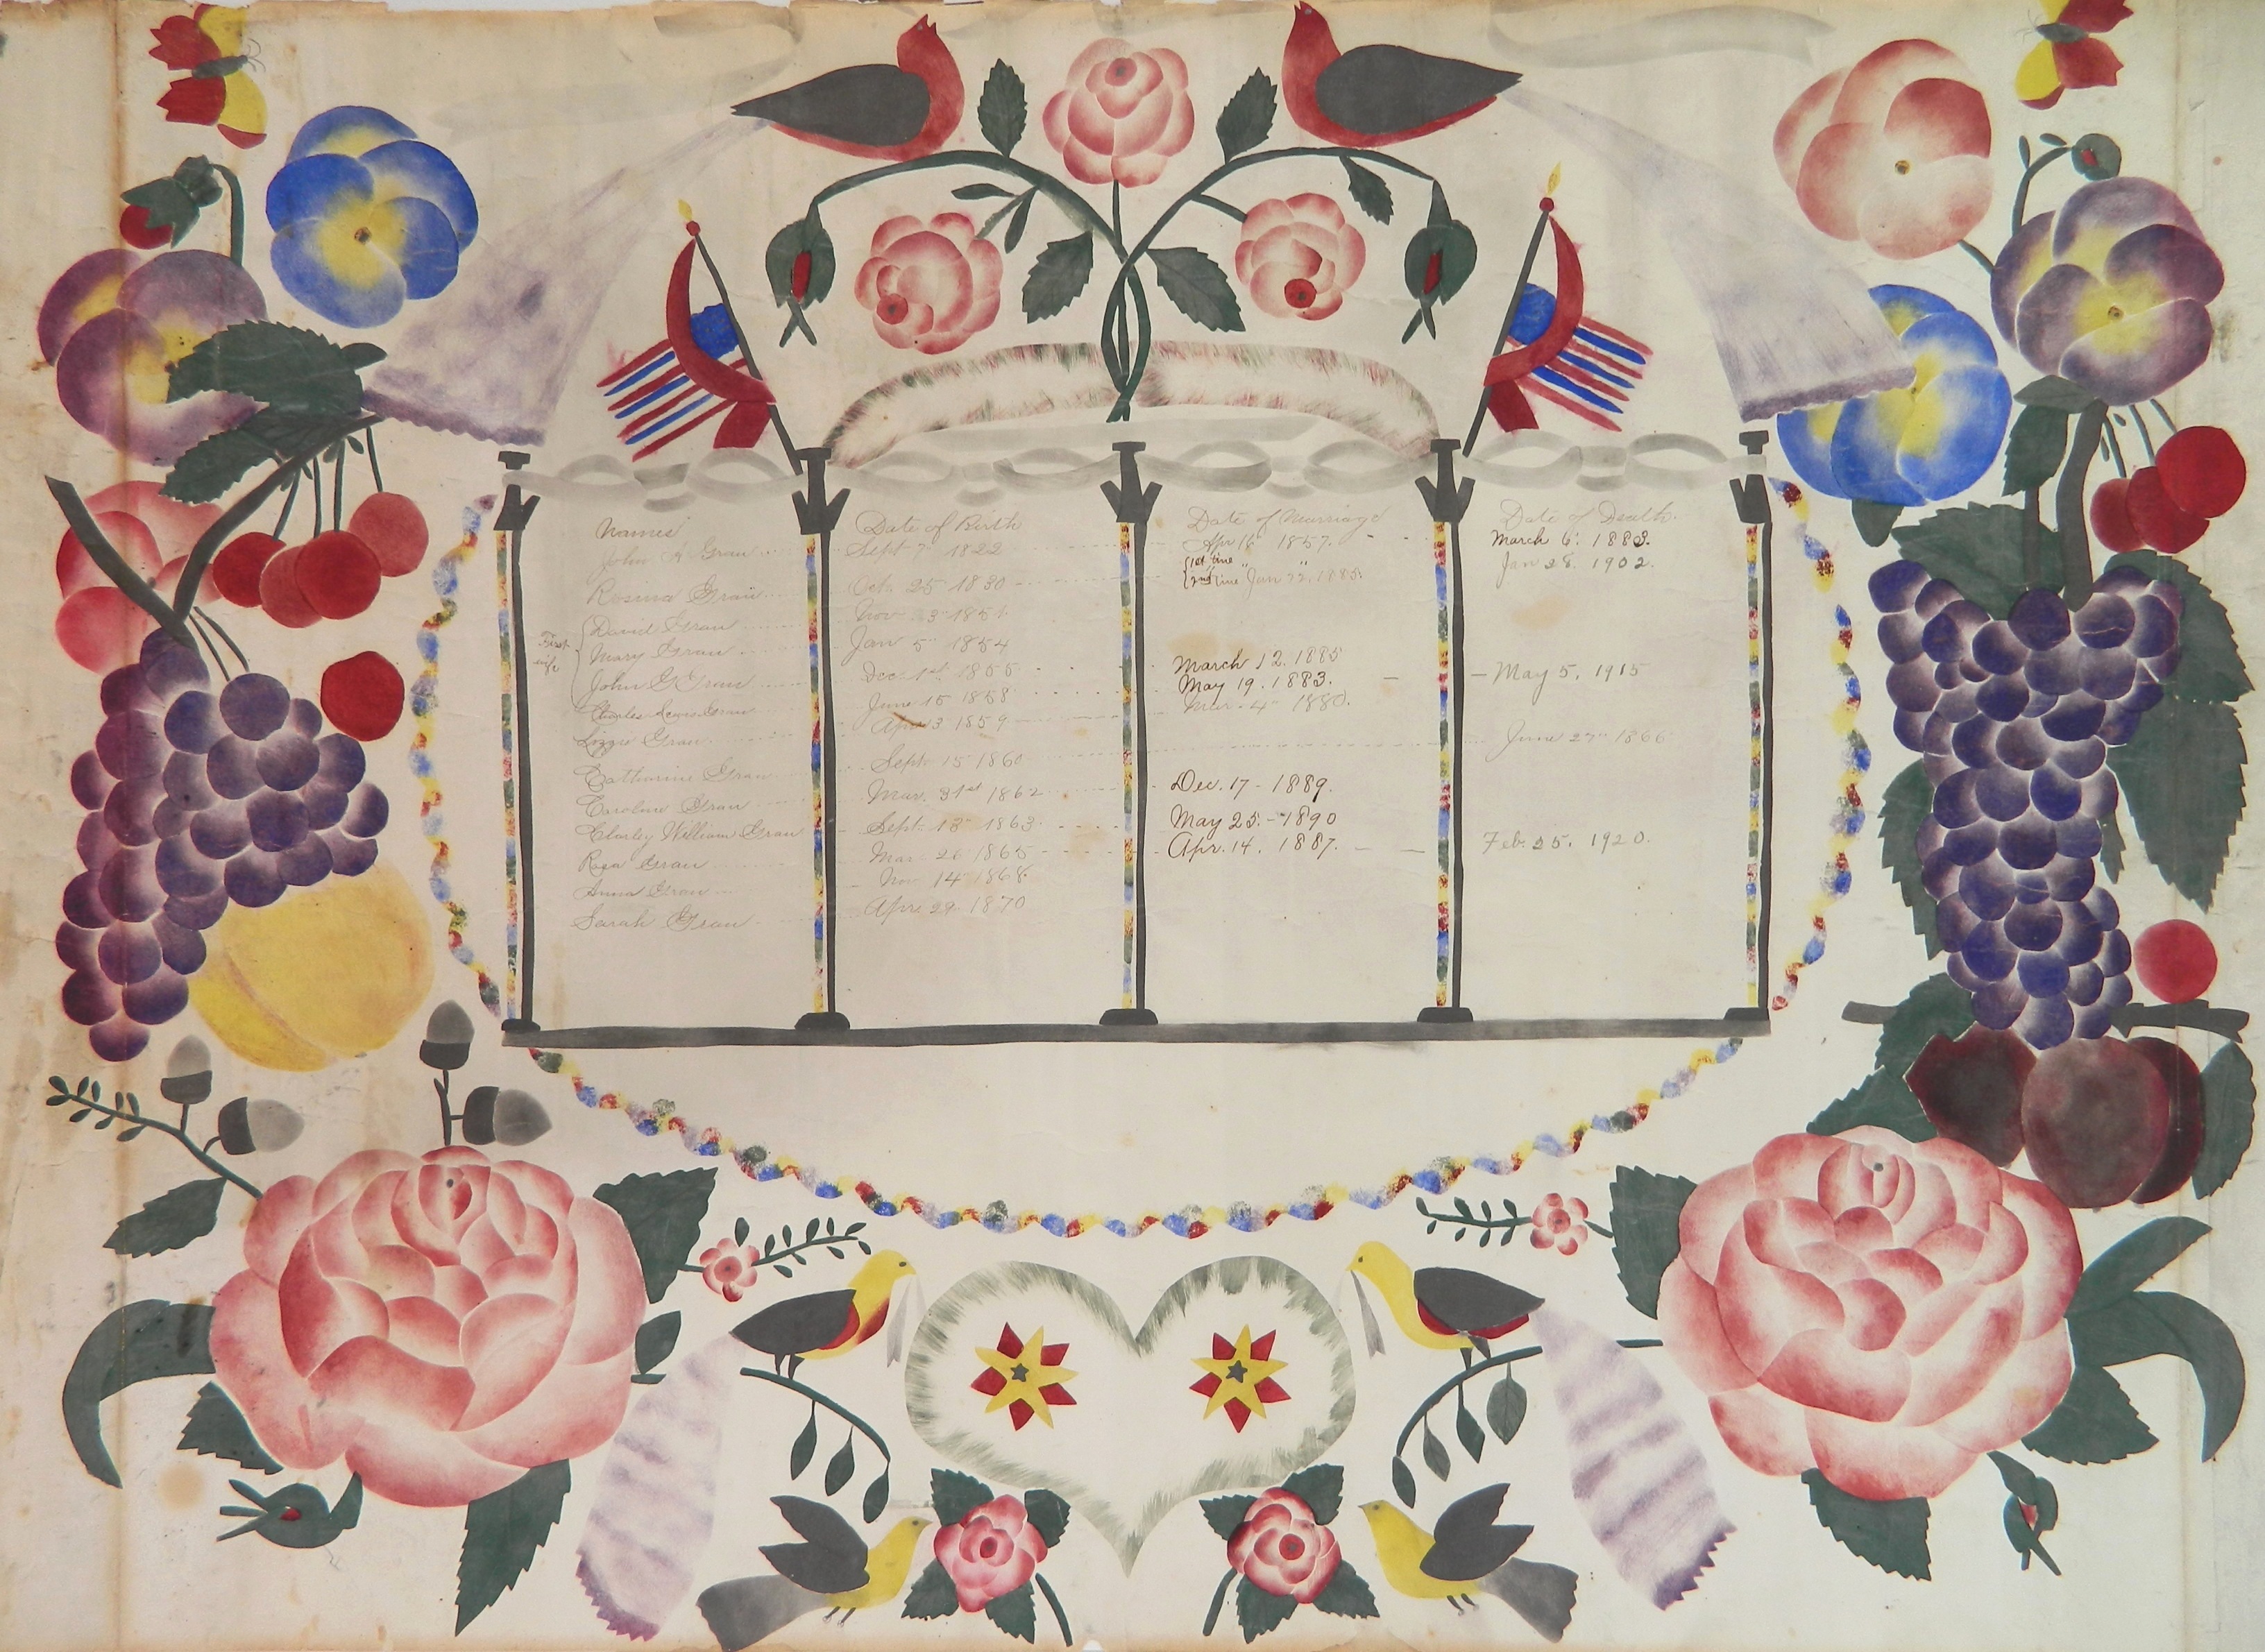 Names Date of Birth Date of Marriage Date of Death.
John A Grau Sept 7 1822 Apr 16 1857. March 6. 1882.
{1st time
Rosina Grau Oct 25 1830 {2nd time Jan 22 1885. Jan 28. 1902.
First wife
David Grau Nov. 3 1851
Mary Grau Jan 5 1854
John G Grau Dec. 1st 1855 March 12. 1885
Charles Lewis Grau June 15 1858 May 19. 1883. May 5. 1915
Lizzie Grau Apr 3 1859 Mar. 4 1880.
Catharine Grau Sept 15 1860 June 27 1866
Caroline Grau Mar. 31st 1862 Dec. 17 - 1889.
Charley William Grau Sept 13 1863 May 25. - 1890
Rosa Grau Mar 26 1865 Apr. 14. 1887. Feb. 25. 1920.
Anna Grau Nov 14 1868
Sarah Grau Apr 29 1870